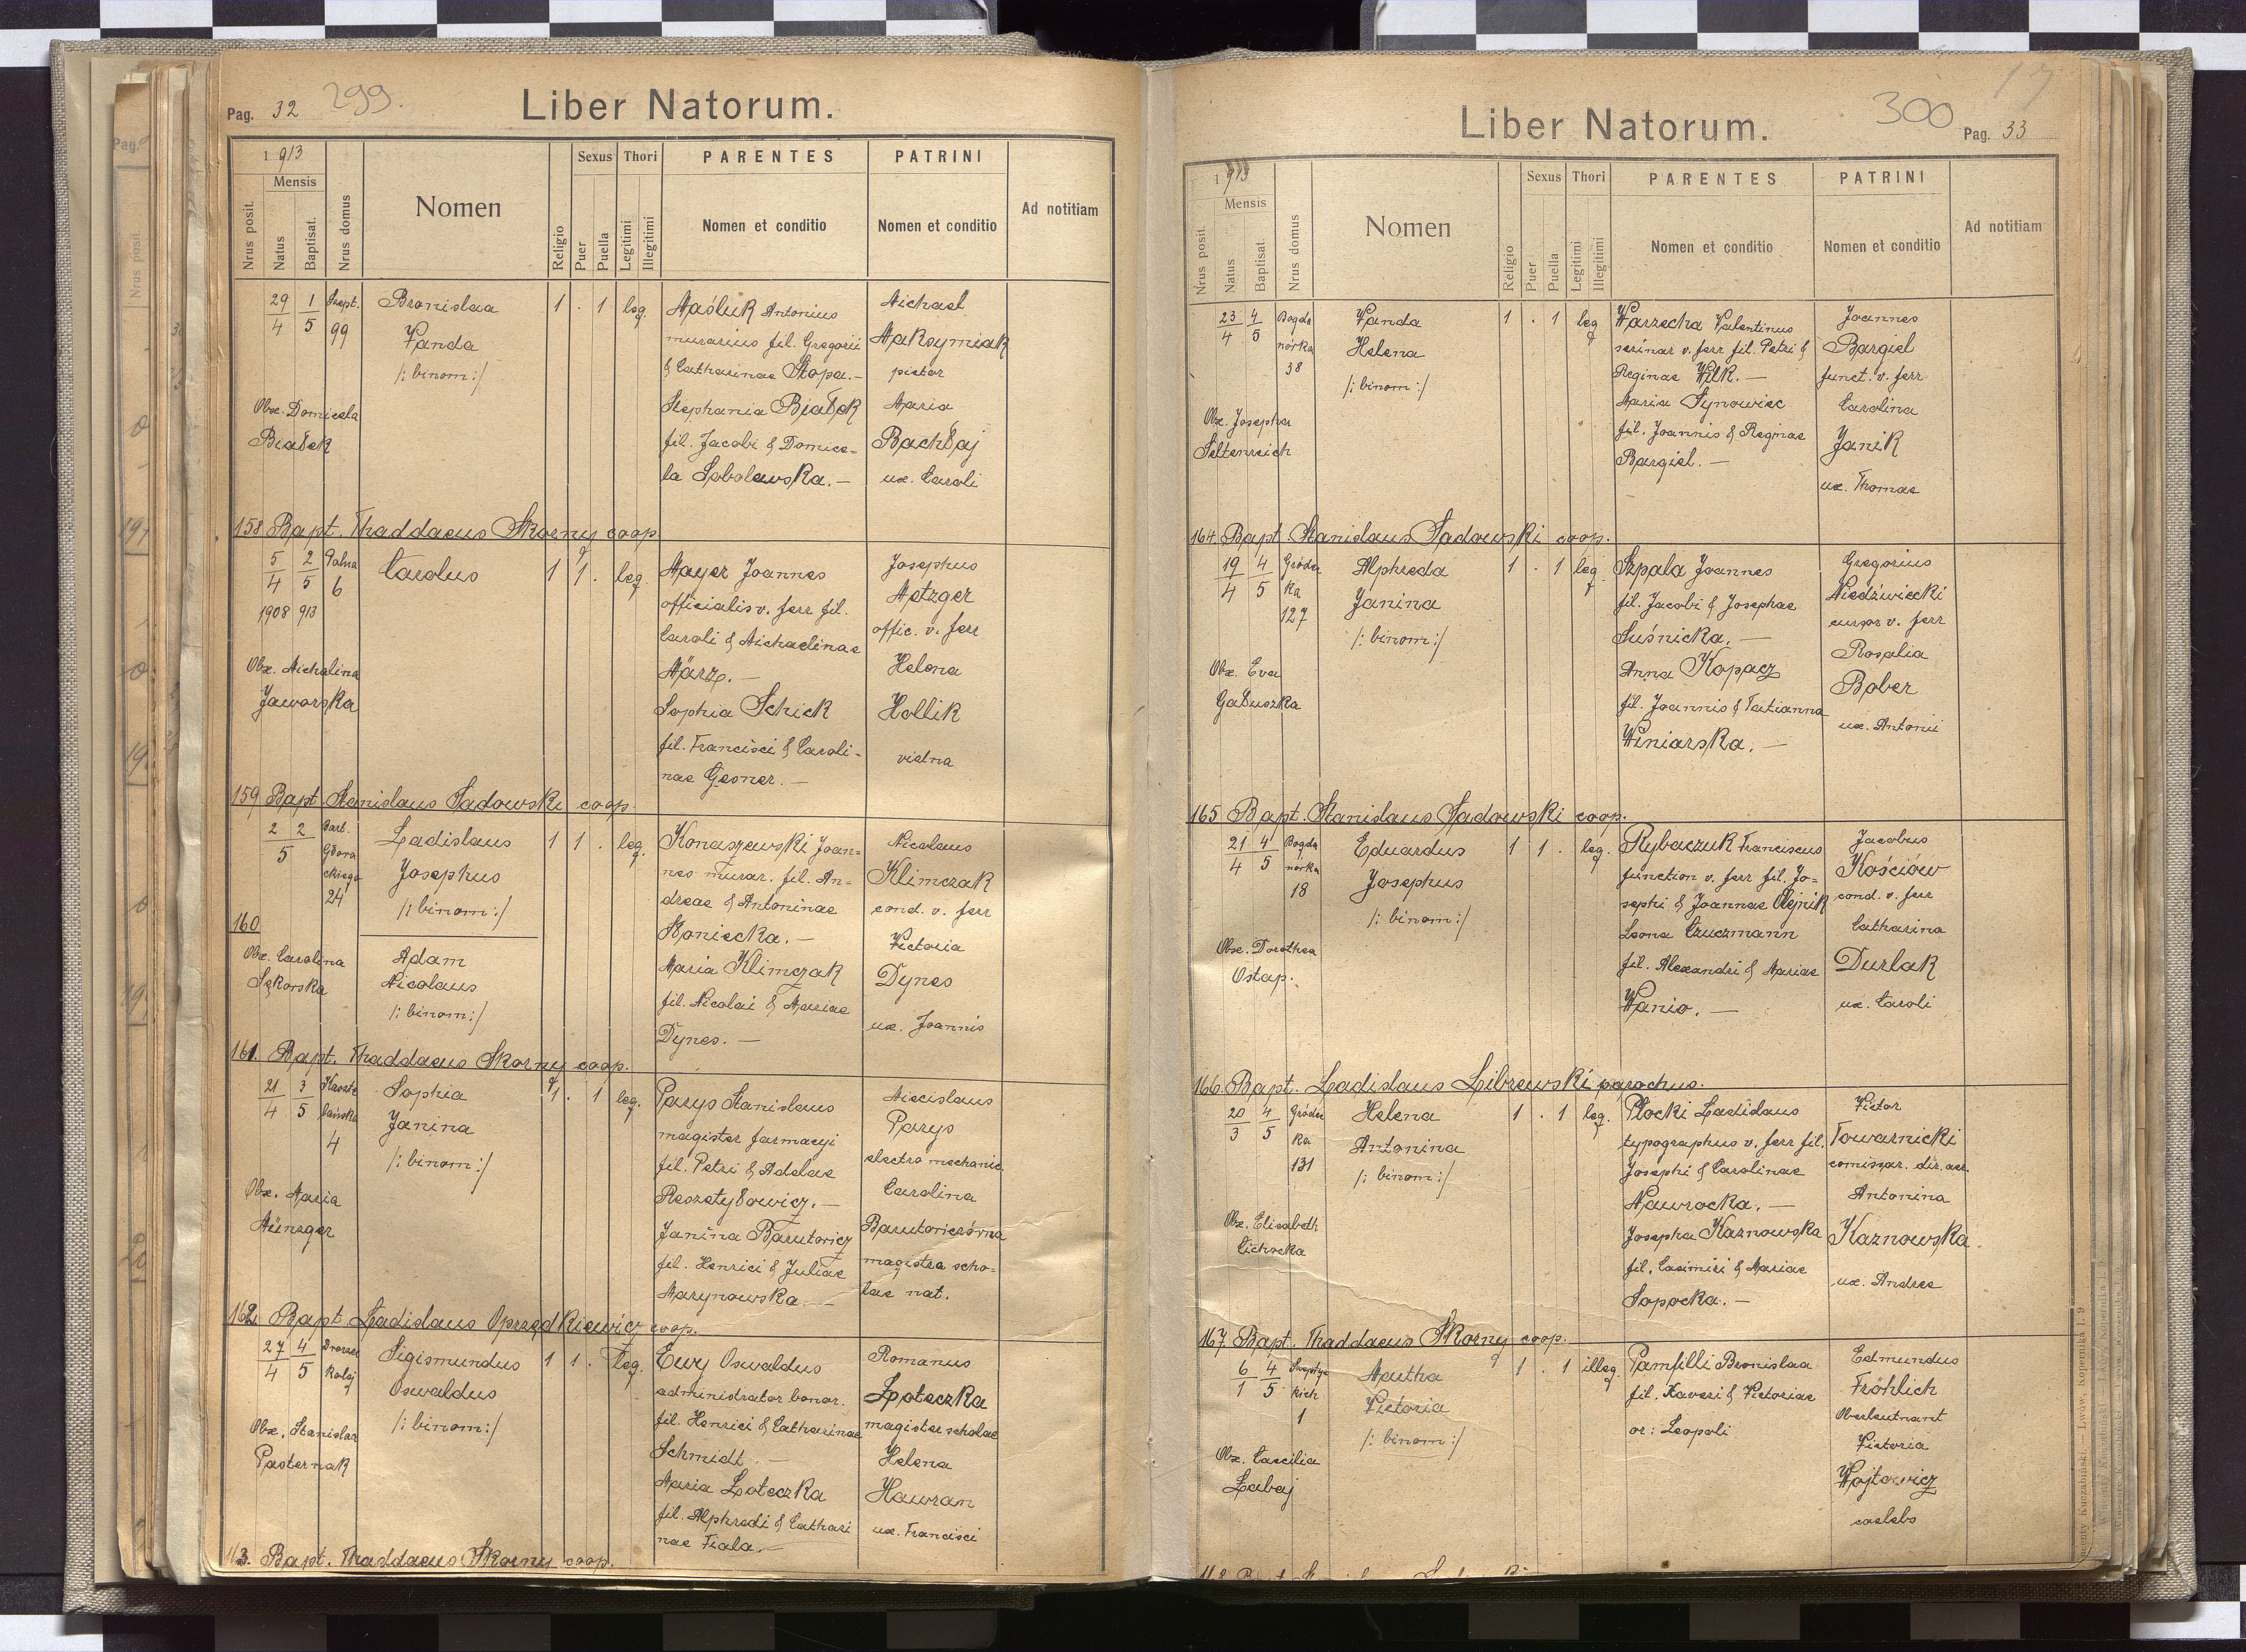 Pag. 32 299.
Liber Natorum.
1913
Mensis
Nrus posit.
Natus
Baptisat.
Nrus domus
Nomen
Religio
Sexus
Puer
Puella
Thori
Legitimi
Illegitimi
PARENTES
Nomen et conditio
PATRINI
Nomen et conditio
Ad notitiam
29/4 1/5 Szept. 99
Bronislaa
Wanda
/: binom :/
1 . 1 leg.
Maśluk Antonius
murarius fil. Gregorii
& Catharinae Stopa.—
Stephania Białek
fil. Jacobi & Domice-
la Sobolewska.—
Michael
Maksymiak
pictor
Maria
Bachłaj
ux. Caroli
Obx. Domicela
Białek
158 Bapt. Thaddaeus Skorny coop
5/4 2/5 6
1908 913
Carolus
1 1 . leg.
Mayer Joannes
officialis v. ferr fil.
Caroli & Michaelinae
März.—
Sophia Schick
fil. Francisci & Caroli-
nae Gesner.—
Josephus
Metzger
offic. v. ferr
Helena
Hollik
vidna
Obx. Michalina
Jaworska
159 Bapt. Stanislaus Sadowski coop.
2 2/5 Bart.
Głowa
ckiego
24
Ladislaus
Josephus
/: binom :/
1 1 . leg.
Konaszewski Joan-
nes murar. fil. An-
dreae & Antoninae
Koniecka.—
Maria Klimczak
fil. Nicolai & Mariae
Dynes.—
Nicolaus
Klimczak
cond. v. ferr
Victoria
Dynes
ux. Joannis
160
Obx. Carolina
Sękorska
Adam
Nicolaus
/: binom :/
161. Bapt. Thaddaeus Skorny coop.
21/4 3/5 Kaszte
lańska
4
Sophia
Janina
/: binom :/
1 . 1 leg.
Parys Stanislaus
magister farmacyi
fil. Petri & Adelae
Reszetyłowicz.—
Janina Barutowicz
fil. Henrici & Juliae
Marynowska.—
Miecislaus
Parys
electro mechanic
Carolina
Barutowiczówna
magistra scho-
lae nat.
Obx. Maria
Münzger
162. Bapt. Ladislaus Oprzędkiewicz coop.
27/4 4/5 Dworzec
Kolej
Sigismundus
Oswaldus
/: binom :/
1 1 . leg.
Ewy Oswaldus
administrator bonor.
fil. Henrici & Catharinae
Schmidt.—
Maria Loteczka
fil. Alphredi & Cathari
nae Fiala.—
Romanus
Loteczka
magister scholae
Helena
Hawran
ux. Francisci
Obx. Stanislaa
Pasternak
163. Bapt. Thaddaeus Skorny coop.
17
Liber Natorum.
300 Pag. 33
1913
Mensis
Nrus posit.
Natus
Baptisat.
Nrus domus
Nomen
Religio
Sexus
Puer
Puella
Thori
Legitimi
Illegitimi
PARENTES
Nomen et conditio
PATRINI
Nomen et conditio
Ad notitiam
23/4 4/5 Bogda
nówka
38
Wanda
Helena
/: binom :/
1 . 1 leg
Warzecha Valentinus
serinar v. ferr fil. Petri &
Reginae Wilk.—
Maria Synowiec
fil. Joannis & Reginae
Bargiel.—
Joannes
Bargiel
funct. v. ferr
Carolina
Janik
ux. Thomae
Obx. Josepha
Seltenreich
164. Bapt. Stanislaus Sadowski coop.
19/4 4/5 Gródec
ka
127
Alphreda
Janina
/: binom :/
1 . 1 leg.
Szpala Joannes
fil. Jacobi & Josephae
Suśnicka.—
Anna Kopacz
fil. Joannis & Tatianna
Winiarska.—
Gregorius
Niedźwiecki
cursor v. ferr
Rosalia
Bober
ux. Antonii
Obx. Eva
Gałuszka
165 Bapt. Stanislaus Sadowski coop.
21/4 4/5 Bogda
nówka
18
Eduardus
Josephus
/: binom :/
1 1 . leg.
Rybaczuk Franciscus
function v. ferr fil. Jo-
sephi & Joannae Olejnik
Leona Czuczmann
fil. Alexandri & Mariae
Wanio.—
Jacobus
Kościów
cond. v. ferr
Catharina
Durlak
ux. Caroli
Obx. Dorothea
Ostap.
166. Bapt. Ladislaus Librewski parochus.
20/3 4/5 Gródec
ka
131
Helena
Antonina
/: binom :/
1 . 1 leg.
Płocki Ladislaus
typographus v. ferr fil.
Josephi & Carolinae
Nawrocka.—
Josepha Kaznowska
fil. Casimiri & Mariae
Sopocka.—
Victor
Towarnicki
comissar. dir. aer.
Antonina
Kaznowska
ux. Andree
Obx. Elisabeth
Cichocka
167. Bapt. Thaddaeus Skorny coop.
6/1 4/5 Szeptyc
kich
1
Martha
Victoria
/: binom :/
1 . 1 illeg.
Pamfilli Bronislaa
fil. Xaveri & Victoriae
or: Leopoli
Edmundus
Fröhlich
Oberleutnant
Victoria
Wojtowicz
caelebs
Obx. Caecilia
Labaj